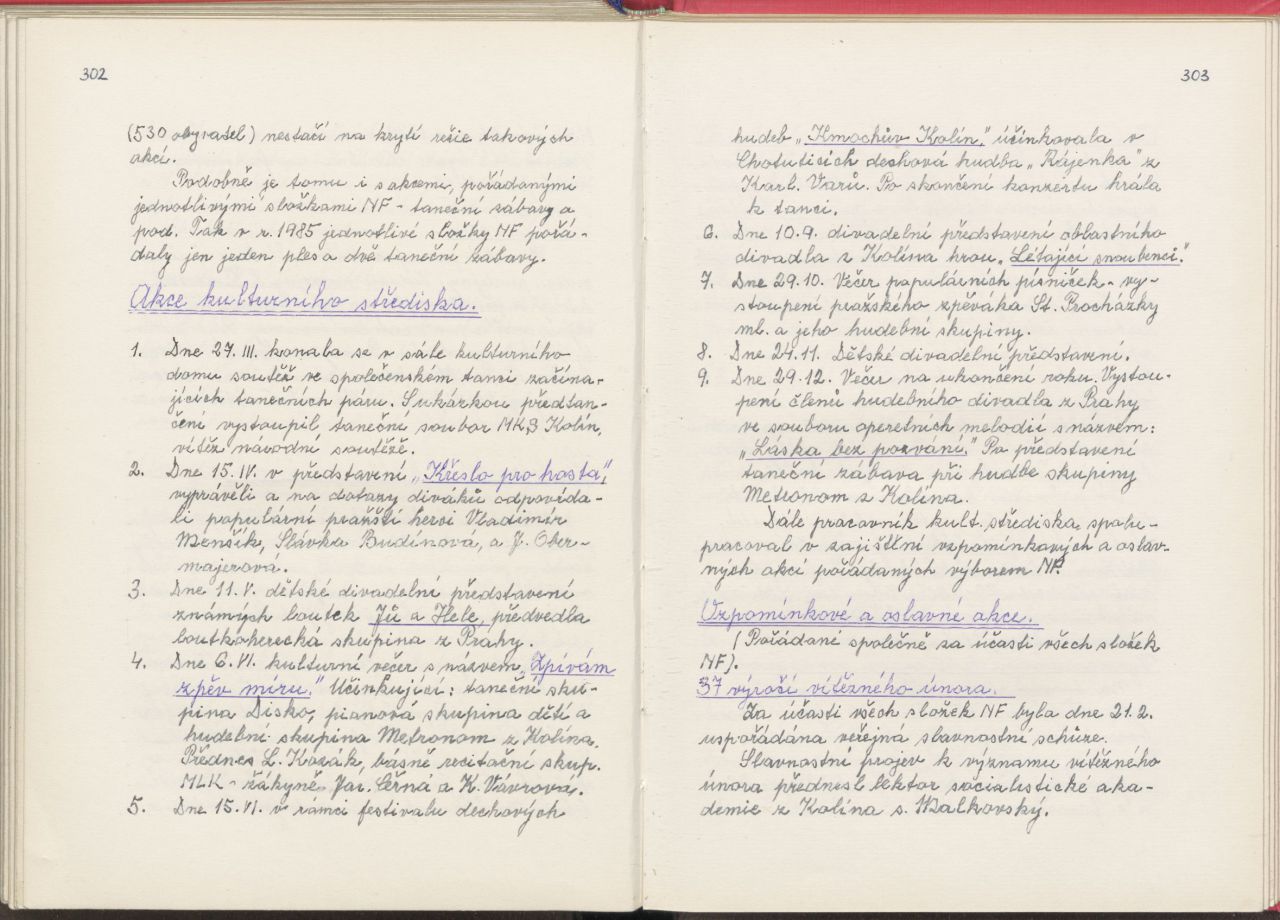 302
(530 obyvatel) nestačí na krytí režie takových
akcí.
Podobně je tomu i s akcemi, pořádanými
jednotlivými složkami NF - taneční zábavy a
pod. Tak v r. 1985 jednotlivé složky NF pořá-
daly jen jeden ples a dvě taneční zábavy.
Akce kulturního střediska.
1. Dne 27. III. konala se v sále kulturního
domu soutěž ve společenském tanci začína-
jících tanečních páru. S ukázkou předtan-
čení vystoupil taneční soubor MKS Kolín,
vítěz národní soutěže.
2. Dne 15. IV. v představení „Křeslo pro hosta",
vyprávěli a na dotazy diváků odpovída-
li populární pražští herci Vladimír
Menšík, Slávka Budínová, a J. Ober-
majerova.
3. Dne 11. V. dětské divadelní představení
známých loutek Jů a Hele, předvedla
loutkoherecká skupina z Prahy.
4. Dne 6. VI. kulturní večer s názvem „Zpívám
zpěv míru." Účinkující: taneční sku-
pina Disko, pianová skupina dětí a
hudební skupina Metronom z Kolína.
Přednes L. Kozák, básně recitační skup.
MLK - žákyně Jar. Černá a K. Vávrová.
5. Dne 15. VI. v rámci festivalu dechových
303
hudeb „Kmochův Kolín," účinkovala v
Chotuticích dechová hudba „Rájenka" z
Karl. Varů. Po skončení konzertu hrála
k tanci.
6. Dne 10.9. divadelní představení oblastního
divadla z Kolína hrou „Létající snoubenci."
7. Dne 29.10. Večer populárních písniček - vy-
stoupení pražského zpěváka St. Procházky
ml. a jeho hudební skupiny.
8. Dne 24.11. Dětské divadelní představení.
9. Dne 29.12. Večer na ukončení roku. Vystou-
pení členů hudebního divadla z Prahy
ve souboru operetních melodií s názvem:
„Láska bez pozvání." Po představení
taneční zábava při hudbě skupiny
Metronom z Kolína.
Dále pracovník kult. střediska spolu-
pracoval v zajištění vzpomínkových a oslav-
ných akcí pořádaných výborem NF.
Vzpomínkové a oslavné akce.
(Pořádané společně za účasti všech složek
NF).
37 výročí vítězného února.
Za účasti všech složek NF byla dne 21.2.
uspořádána veřejna slavnostní schůze.
Slavnostní projev k významu vítězného
února přednesl lektor socialistické aka-
demie z Kolína s. Walkovský.